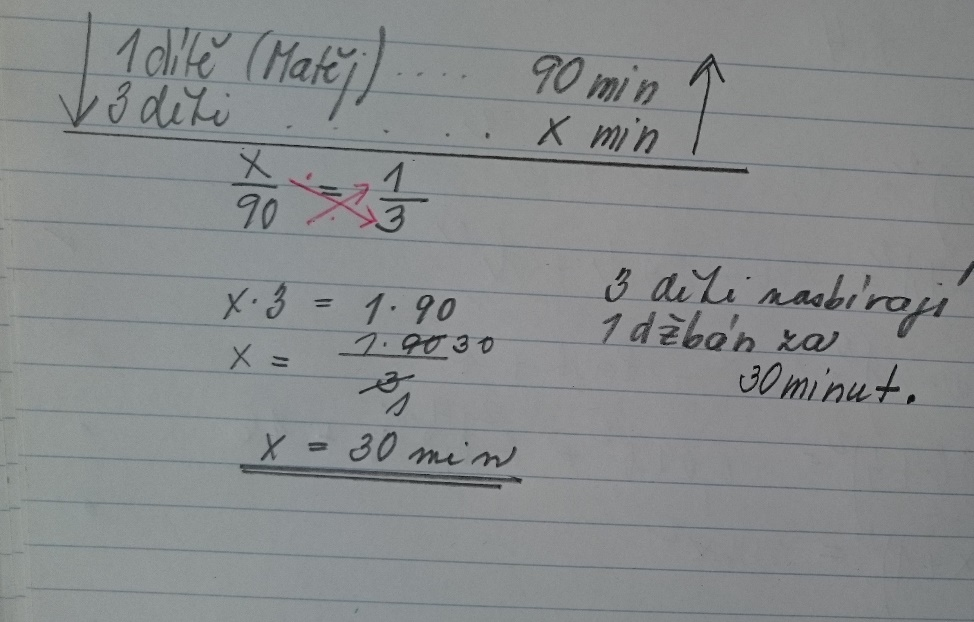 1 dítě (Matěj) .... 90 min
3 děti ..... x min
x/90 = 1/3
x · 3 = 1 · 90
x = 1 · 90 30 / 3 1
x = 30 min
3 děti nasbírají
1 džbán za
30 minut.